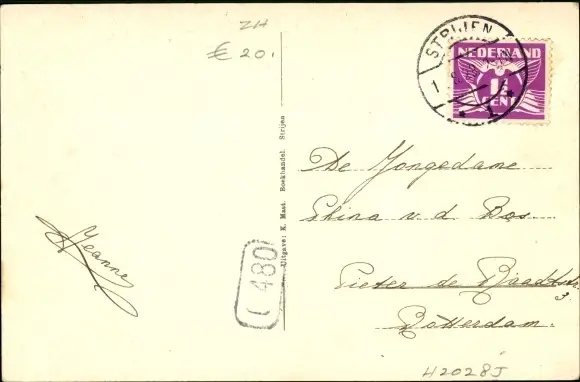 ZH
€ 20.
STRIJEN
NEDERLAND
1½
CENT
De Jongedame
v. d. Bos.
Pieter de
3.
Rotterdam.
Jeanne
Uitgave: K. Mast. Boekhandel. Strijen
480
H2028J